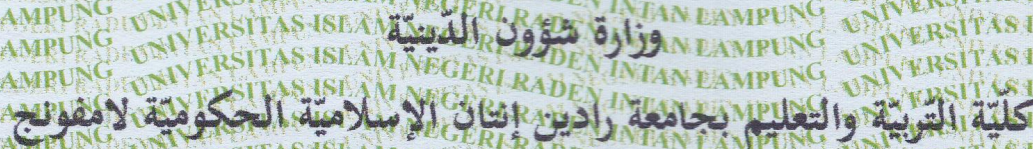 وزارة شؤون الدّينيّة
كلّيّة التّربيّة والتعليم بجامعة رادين إنتان الإسلاميّة الحكوميّة لامفونج
UNIVERSITAS ISLAM NEGERI RADEN INTAN LAMPUNG